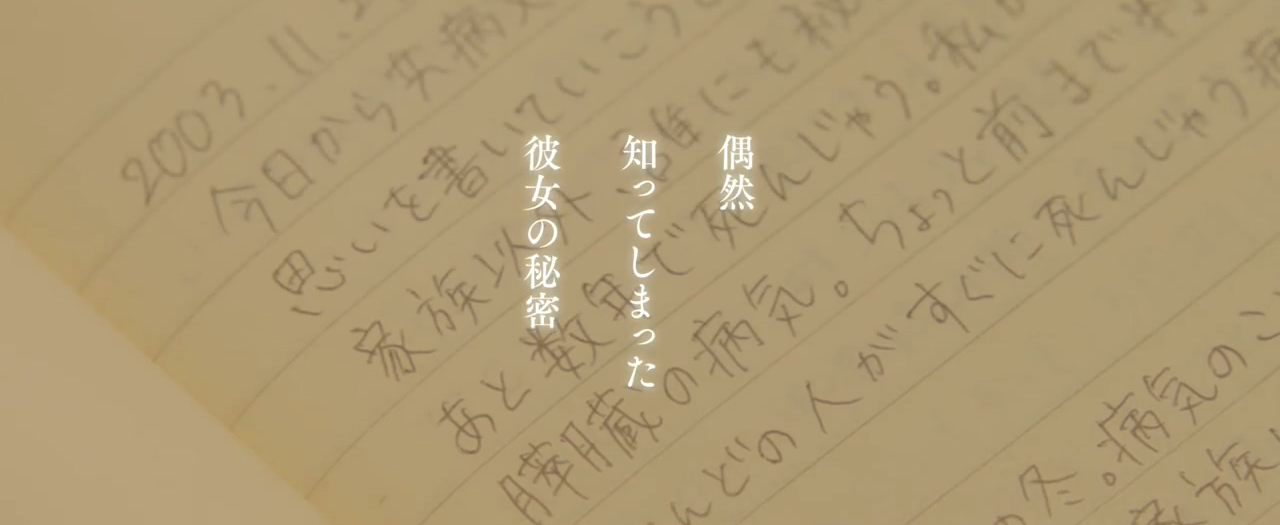 偶然
知ってしまった
彼女の秘密
2003.11.2
今日から共病文
思いを書いていこうと
家族以外誰にも秘
あと数年で死んじゃう。私
膵臓の病気。ちょっと前まで判
んどの人がすぐに死んじゃう病
の冬。病気のこ
家族